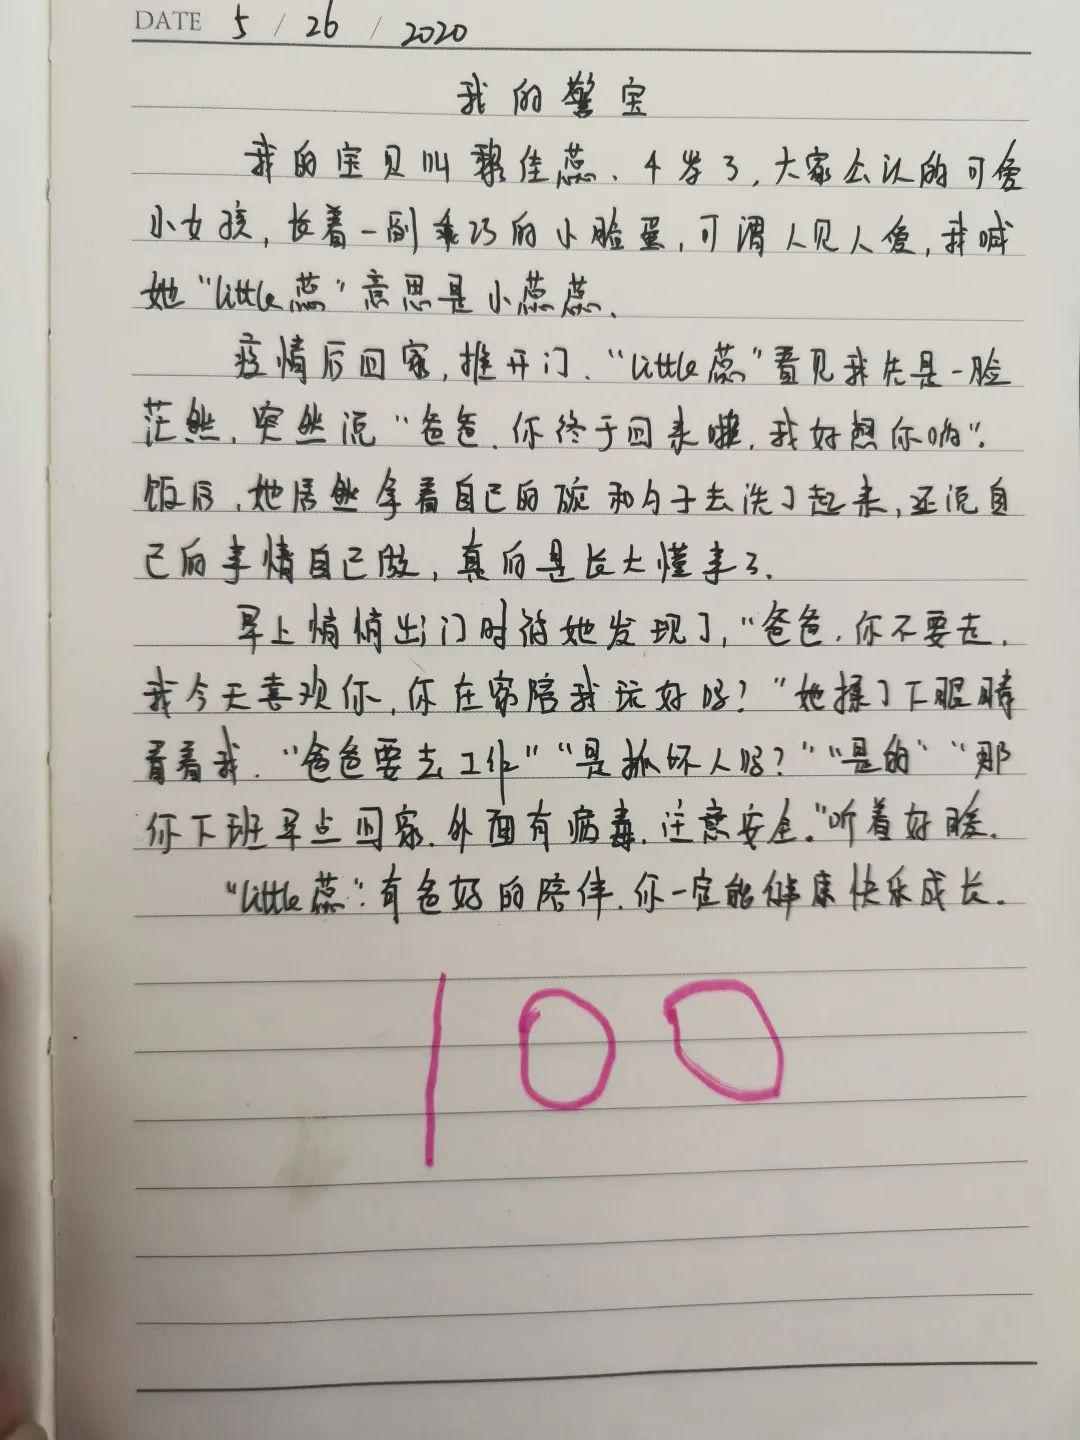 DATE 5 / 26 / 2020
我的警宝
我的宝贝叫黎佳蕊、4岁了,大家公认的可爱
小女孩,长着一副乖巧的小脸蛋,可谓人见人爱,我喊
她“little蕊”意思是小蕊蕊、
疫情后回家,推开门、“little蕊”看见我先是一脸
茫然、突然说“爸爸、你终于回来啦,我好想你哟”.
饭后,她居然拿着自己的碗和勺子去洗了起来,还说自
己的事情自己做,真的是长大懂事了.
早上悄悄出门时被她发现了,“爸爸,你不要走,
我今天喜欢你,你在家陪我玩好吗?”她揉了下眼睛
看着我.“爸爸要去工作”“是抓坏人吗?”“是的”“那
你下班早点回家.外面有病毒,注意安全。”听着好暖.
“little蕊”:有爸好的陪伴.你一定能健康快乐成长.
100